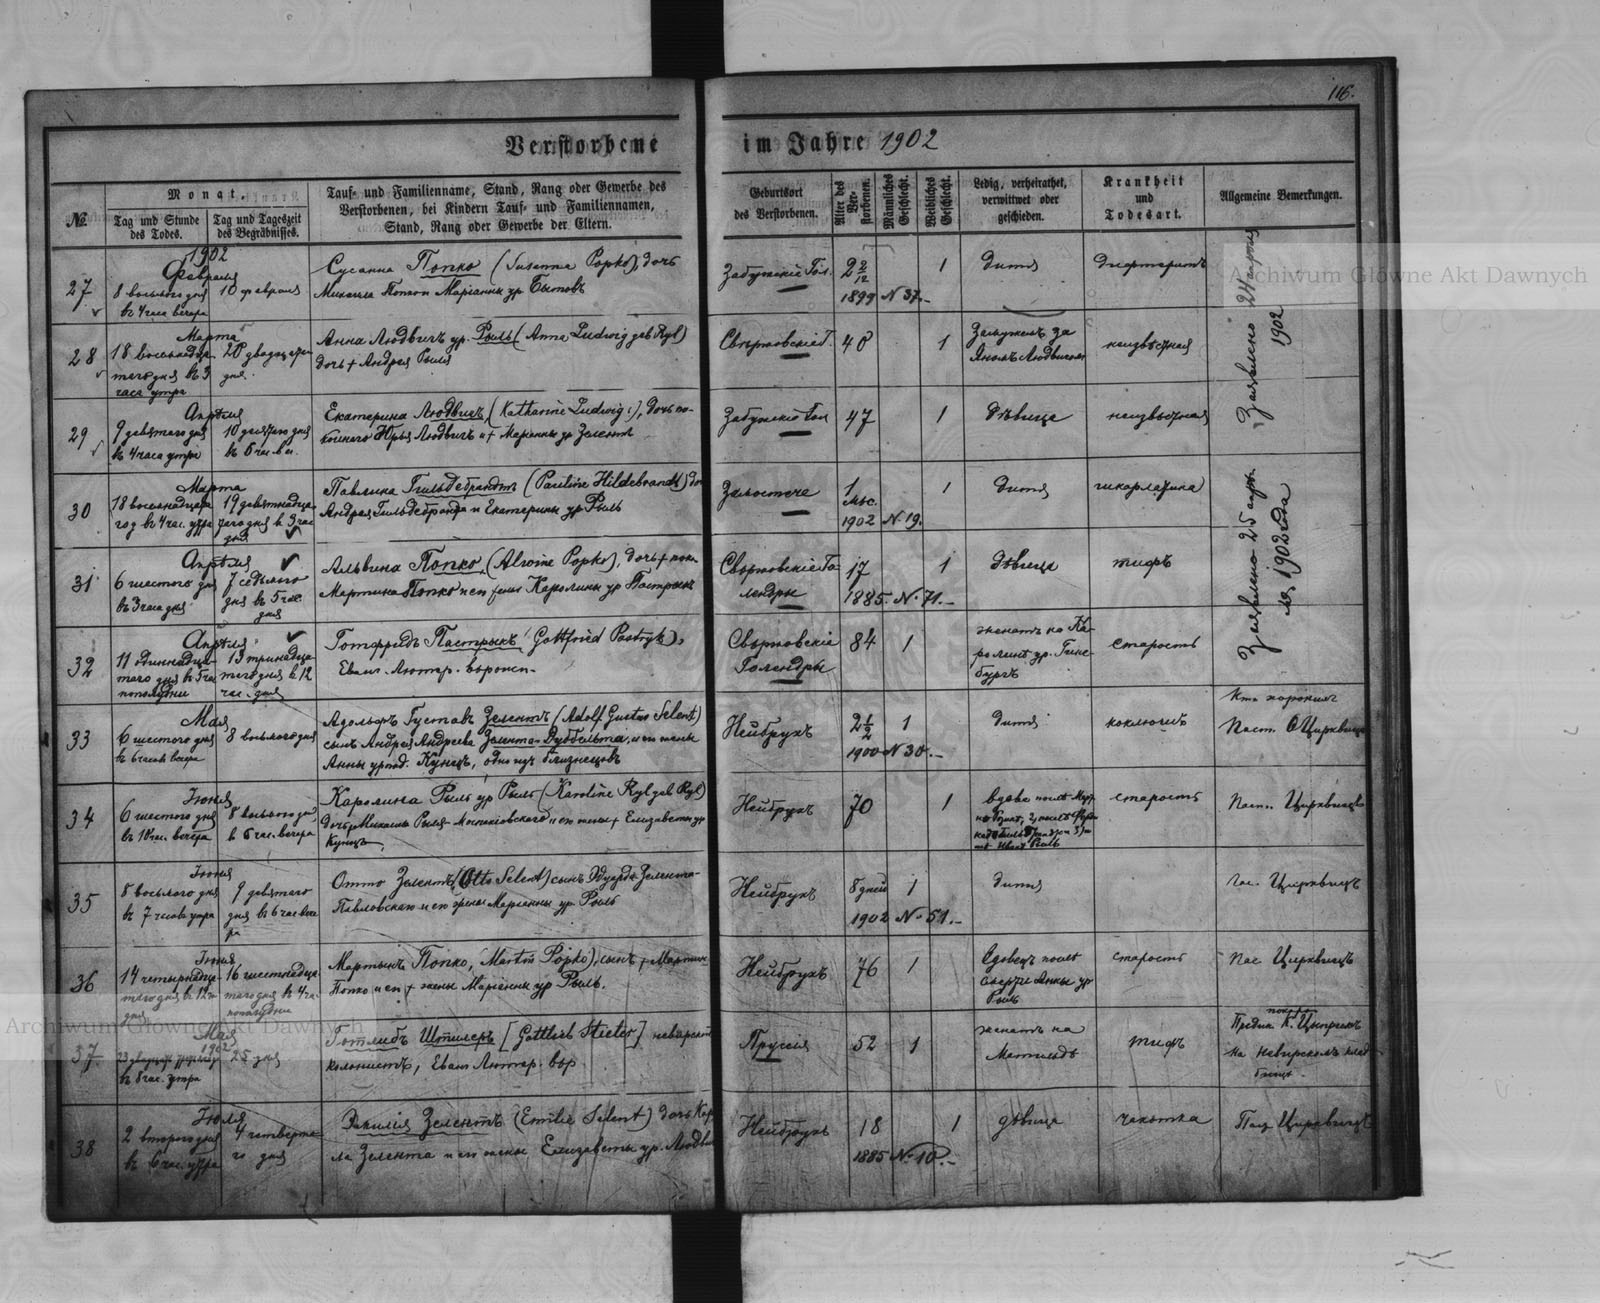 116.
Verstorbene im Jahre 1902
№
Monat.
Tag und Stunde des Todes.
Tag und Tageszeit des Begräbnisses.
Tauf- und Familienname, Stand, Rang oder Gewerbe des
Verstorbenen, bei Kindern Tauf- und Familiennamen,
Stand, Rang oder Gewerbe der Eltern.
Geburtsort
des Verstorbenen.
Alter des Verstorbenen.
Männliches Geschlecht.
Weibliches Geschlecht.
Ledig, verheirathet,
verwittwet oder
geschieden.
Krankheit
und
Todesart.
Allgemeine Bemerkungen.
1902
Февраля
27
8 восьмого дня
въ 4 часа вечера
10 февраля
Сусанна Попко (Susanna Popko), дочь
Михаила Попко и Марiанны ур
Забужскiе Гол.
2 2/12
1899 N 37.
1
Дитя
Дифтеритъ
Марта
28
18
въ 3
часа утра
20
дня
Анна Людвигъ ур. Рыль (Anna Ludwig geb Ryl)
дочь † Андрея Рыля
Свержовскiе Г.
40
1
Замужемъ за
Яномъ Людвигомъ
неизвѣстная
Заявлено 24 апреля
1902
Апрѣля
29
9 девятого дня
въ 4 часа утра
10 десятого дня
въ 6 час. в.
Екатерина Людвигъ (Katharine Ludwig), дочь по-
койного Юрья Людвигъ и † Марiанны ур Зелентъ
Забужскiе Гол
47
1
Дѣвица
неизвѣстная
Марта
30
18 восемнадца
год въ 4 час. утра
19 девятнадца
того дня в 3 час
дня
Павлина Гильдебрандтъ (Pauline Hildebrandt) до
Андрея Гильдебрандта и Екатерины ур Рыль
Замостече
1
мѣс.
1902 N 19.
1
Дитя
шкарлатина
Апрѣля
31
6 шестого дня
въ 3 часа дня
7 седьмого
дня въ 5 час.
дня
Альвина Попко (Alwine Popko), дочь † пок.
Мартина Попко и его жены Каролины ур Пастрыкъ
Свержовскiе Го-
лендры
17
1885. N. 71.
1
Дѣвица
тифъ
Заявлено 25 апр.
1902 года
Апрѣля
32
11 одиннадца-
того дня въ 5 час
пополудни
13 тринадца
того дня в 12
час. дня
Готфридъ Пастрыкъ (Gottfried Pastryk),
Еванг. Лютер. вѣроисп.
Свержовскiе
Голендры
84
1
женатъ на Ка-
ролинѣ ур. Гинс-
бургъ
старость
Мая
33
6 шестого дня
въ 6 часов вечера
8 восьмого дня
Адольфъ Густавъ Зелентъ (Adolf Gustav Selent)
сынъ Андрея Андреева Зелента-Дуббельта, и его жены
Анны урожд. Кунцъ, одно изъ близнецовъ
Нейбрухъ
2 1/2
1900 N 30.
1
дитя
коклюшъ
Кто хоронилъ
Паст. О Цирквицъ
Iюня
34
6 шестого дня
въ 10 час. вечера
8 восьмого дня
в 6 час. вечера
Каролина Рыль ур Рыль (Karoline Ryl geb Ryl)
дочь Михаила Рыля и его жены † Елизаветы ур
Кунцъ,
Нейбрухъ
70
1
вдова послѣ
старость
Пас. Цирквицъ
Iюня
35
8 восьмого дня
въ 7 часов утра
9 девятого
дня въ 6 час вече
ра
Отто Зелентъ, (Otto Selent) сынъ Эдуарда Зелента-
Павловскаго и его жены Марiанны ур Рыль
Нейбрухъ
8 дней
1902 N. 51.
1
дитя
Пас. Цирквицъ
Iюня
36
14 четырнадца-
того дня в 12 ч
дня
16 шестнадца
того дня въ 4 ча.
пополудни
Мартынъ Попко, (Martin Popko), сынъ † Мартина
Попко и его † жены Марiанны ур Рыль.
Нейбрухъ
76
1
Вдовецъ послѣ
смерти Анны ур
Рыль
старость
Пас Цирквицъ
Мая
1902
37
въ 8 час. утра
25 дня
Готлибъ Штилеръ [Gottlieb Stieler]
колонистъ, Еванг Лютер. вѣр.
Пруссiя
52
1
женатъ на
Матильдѣ
тифъ
К. Циприхъ
на Невирскомъ клад
бищѣ
Iюля
38
2 второго дня
въ 6 час. утра
4 четверта-
го дня
Эмилiя Зелентъ (Emilie Selent) дочь Кар
ла Зелента и его жены Елизаветы ур. Людвиг
Нейбрухъ
18
1885 N. 10.
1
дѣвица
чахотка
Пас Цирквицъ
Archiwum Główne Akt Dawnych
Archiwum Główne Akt Dawnych